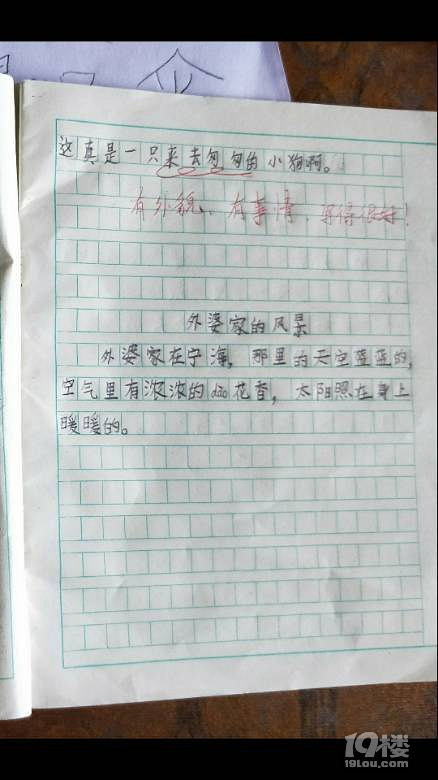 这真是一只来去匆匆的小狗啊。
有外貌、有事情,写得很好!
外婆家的风景
外婆家在宁海,那里的天空蓝蓝的,
空气里有浓浓的dào花香,太阳照在身上
暖暖的。
19楼
19lou.com